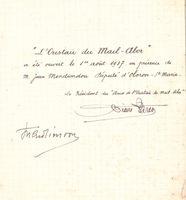 "L'Oustau du Mail-Aber"
a été ouvert le 1er août 1937 en présence de
M. Jean Mendiondou Député d'Oloron-Ste Marie.
Le Président des "Amis de l'Oustau du Mail-Aber"